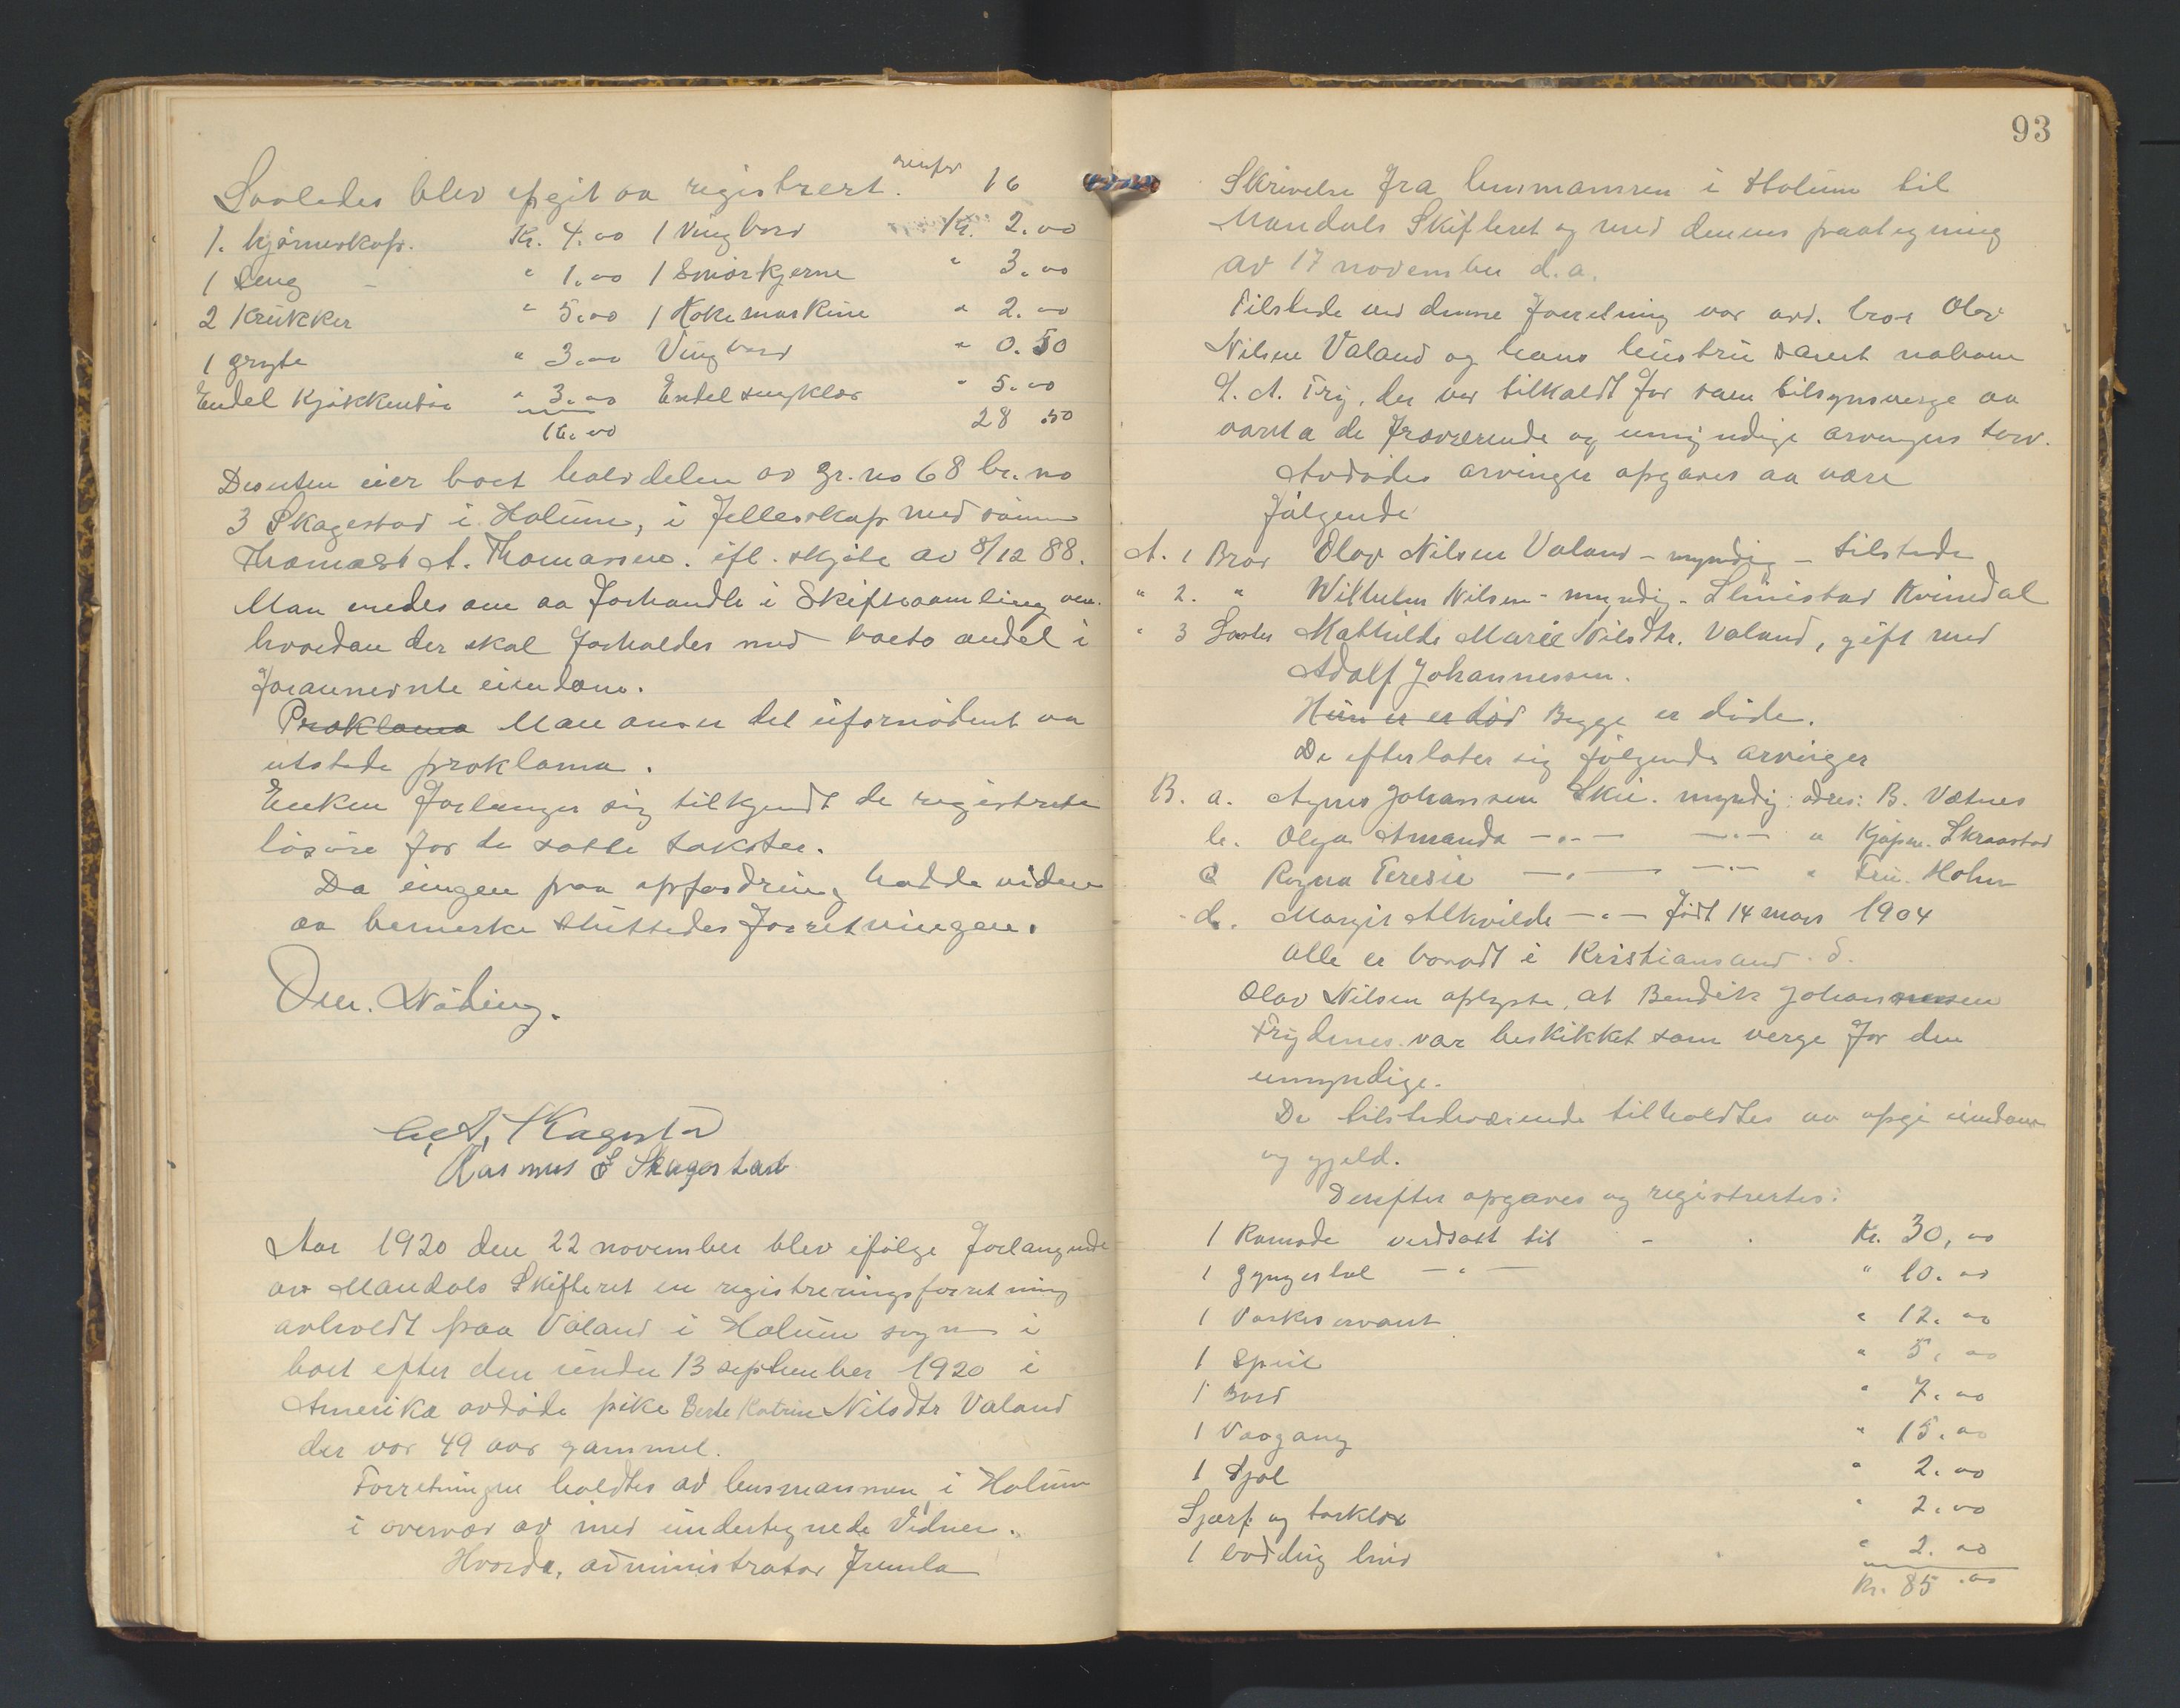 Saaledes blev opgit aa registrert. 16
1. hjørneskap. Kr. 4.00 1 Vingbord Kr. 2.00
1 Seng - " 1.00 1 Smørkjerne " 3.00
2 Krukker " 5.00 1 Kokemaskine " 2.00
1 gryte " 3.00 Vingbord " 0.50
Endel Kjøkkentøi " 3.00 Endel sengklær " 5.00
16.00 28.50
Desuten eier boet halvdelen av gr. no 68 br. no
3 Skagestad i Holum, i Fellesskap med
Thomas A. Thomassen. ifl. skjøte av 8/12 88.
Man enedes om aa forhandle i Skiftesamling om
hvordan der skal forholdes med boets andel i
forannevnte eiendom.
Proklama Man anser det ufornødent aa
utstede proklama.
Enken forlanger sig tilkjendt de registrerte
løsøre for de satte takster.
Da ingen paa opfordring hadde videre
aa bemerke sluttedes forretningen.
Om. Nøding.
Skagestad
Rasmus S Skagestad
Aar 1920 den 22 november blev ifølge forlangende
av Mandals Skifteret en registreringsforretning
avholdt paa Valand i Holum sogn i
boet efter den under 13 september 1920 i
Amerika avdøde pike Berte Katrine Nilsdtr Valand
der var 49 aar gammel.
Forretningen holdtes av lensmannen i Holum
i overvær av med undertegnede Vidner.
Hvorda, administrator fremla
93
Skrivelse fra lensmannen i Holum til
Mandals Skifteret og med dennes paategning
av 17 november d.a.
Tilstede ved denne forretning var avd. bror Olav
Nilsen Valand og hans hustru samt naboen
T. A. Try, der var tilkaldt for som tilsynsverge aa
vareta de fraværende og umyndige arvingers tarv.
Avdødes arvinger opgaves aa være
følgende
A. 1 Bror Olav Nilsen Valand - myndig - tilstede
" 2. " Wilhelm Nilsen - myndig - Slimestad Kvinesdal
" 3 Søster Mathilde Marie Nilsdtr. Valand, gift med
Adolf Johannessen.
Hun er er død Begge er døde.
De efterlater sig følgende arvinger
B. a. Agnes Johanssen Sku. myndig: adres: B. Vatnes
b. Olga Amanda -"- -"- " Kjøpm. Skraastad
c Ragna Teresie -"- -"- " Fru. Holm
d. Margit Alkvilde -"- født 14 mars 1904
Alle er bosadt i Kristiansand. S.
Olav Nilsen oplyste, at Bendik Johannessen
Frydenes var beskikket som verge for den
umyndige.
De tilstedeværende tilholdtes aa opgi eiendom
og gjeld.
Derefter opgaves og registrertes:
1 Komode verdsatt til - Kr. 30,00
1 gyngestol -"- " 10.00
1 Vaskeservant " 12.00
1 Speil " 5,00
1 Bord " 7.00
1 Vaagang " 15.00
1 Sjal " 2.00
Skjærf og torklær " 2.00
1 " 2.00
Kr. 85.00